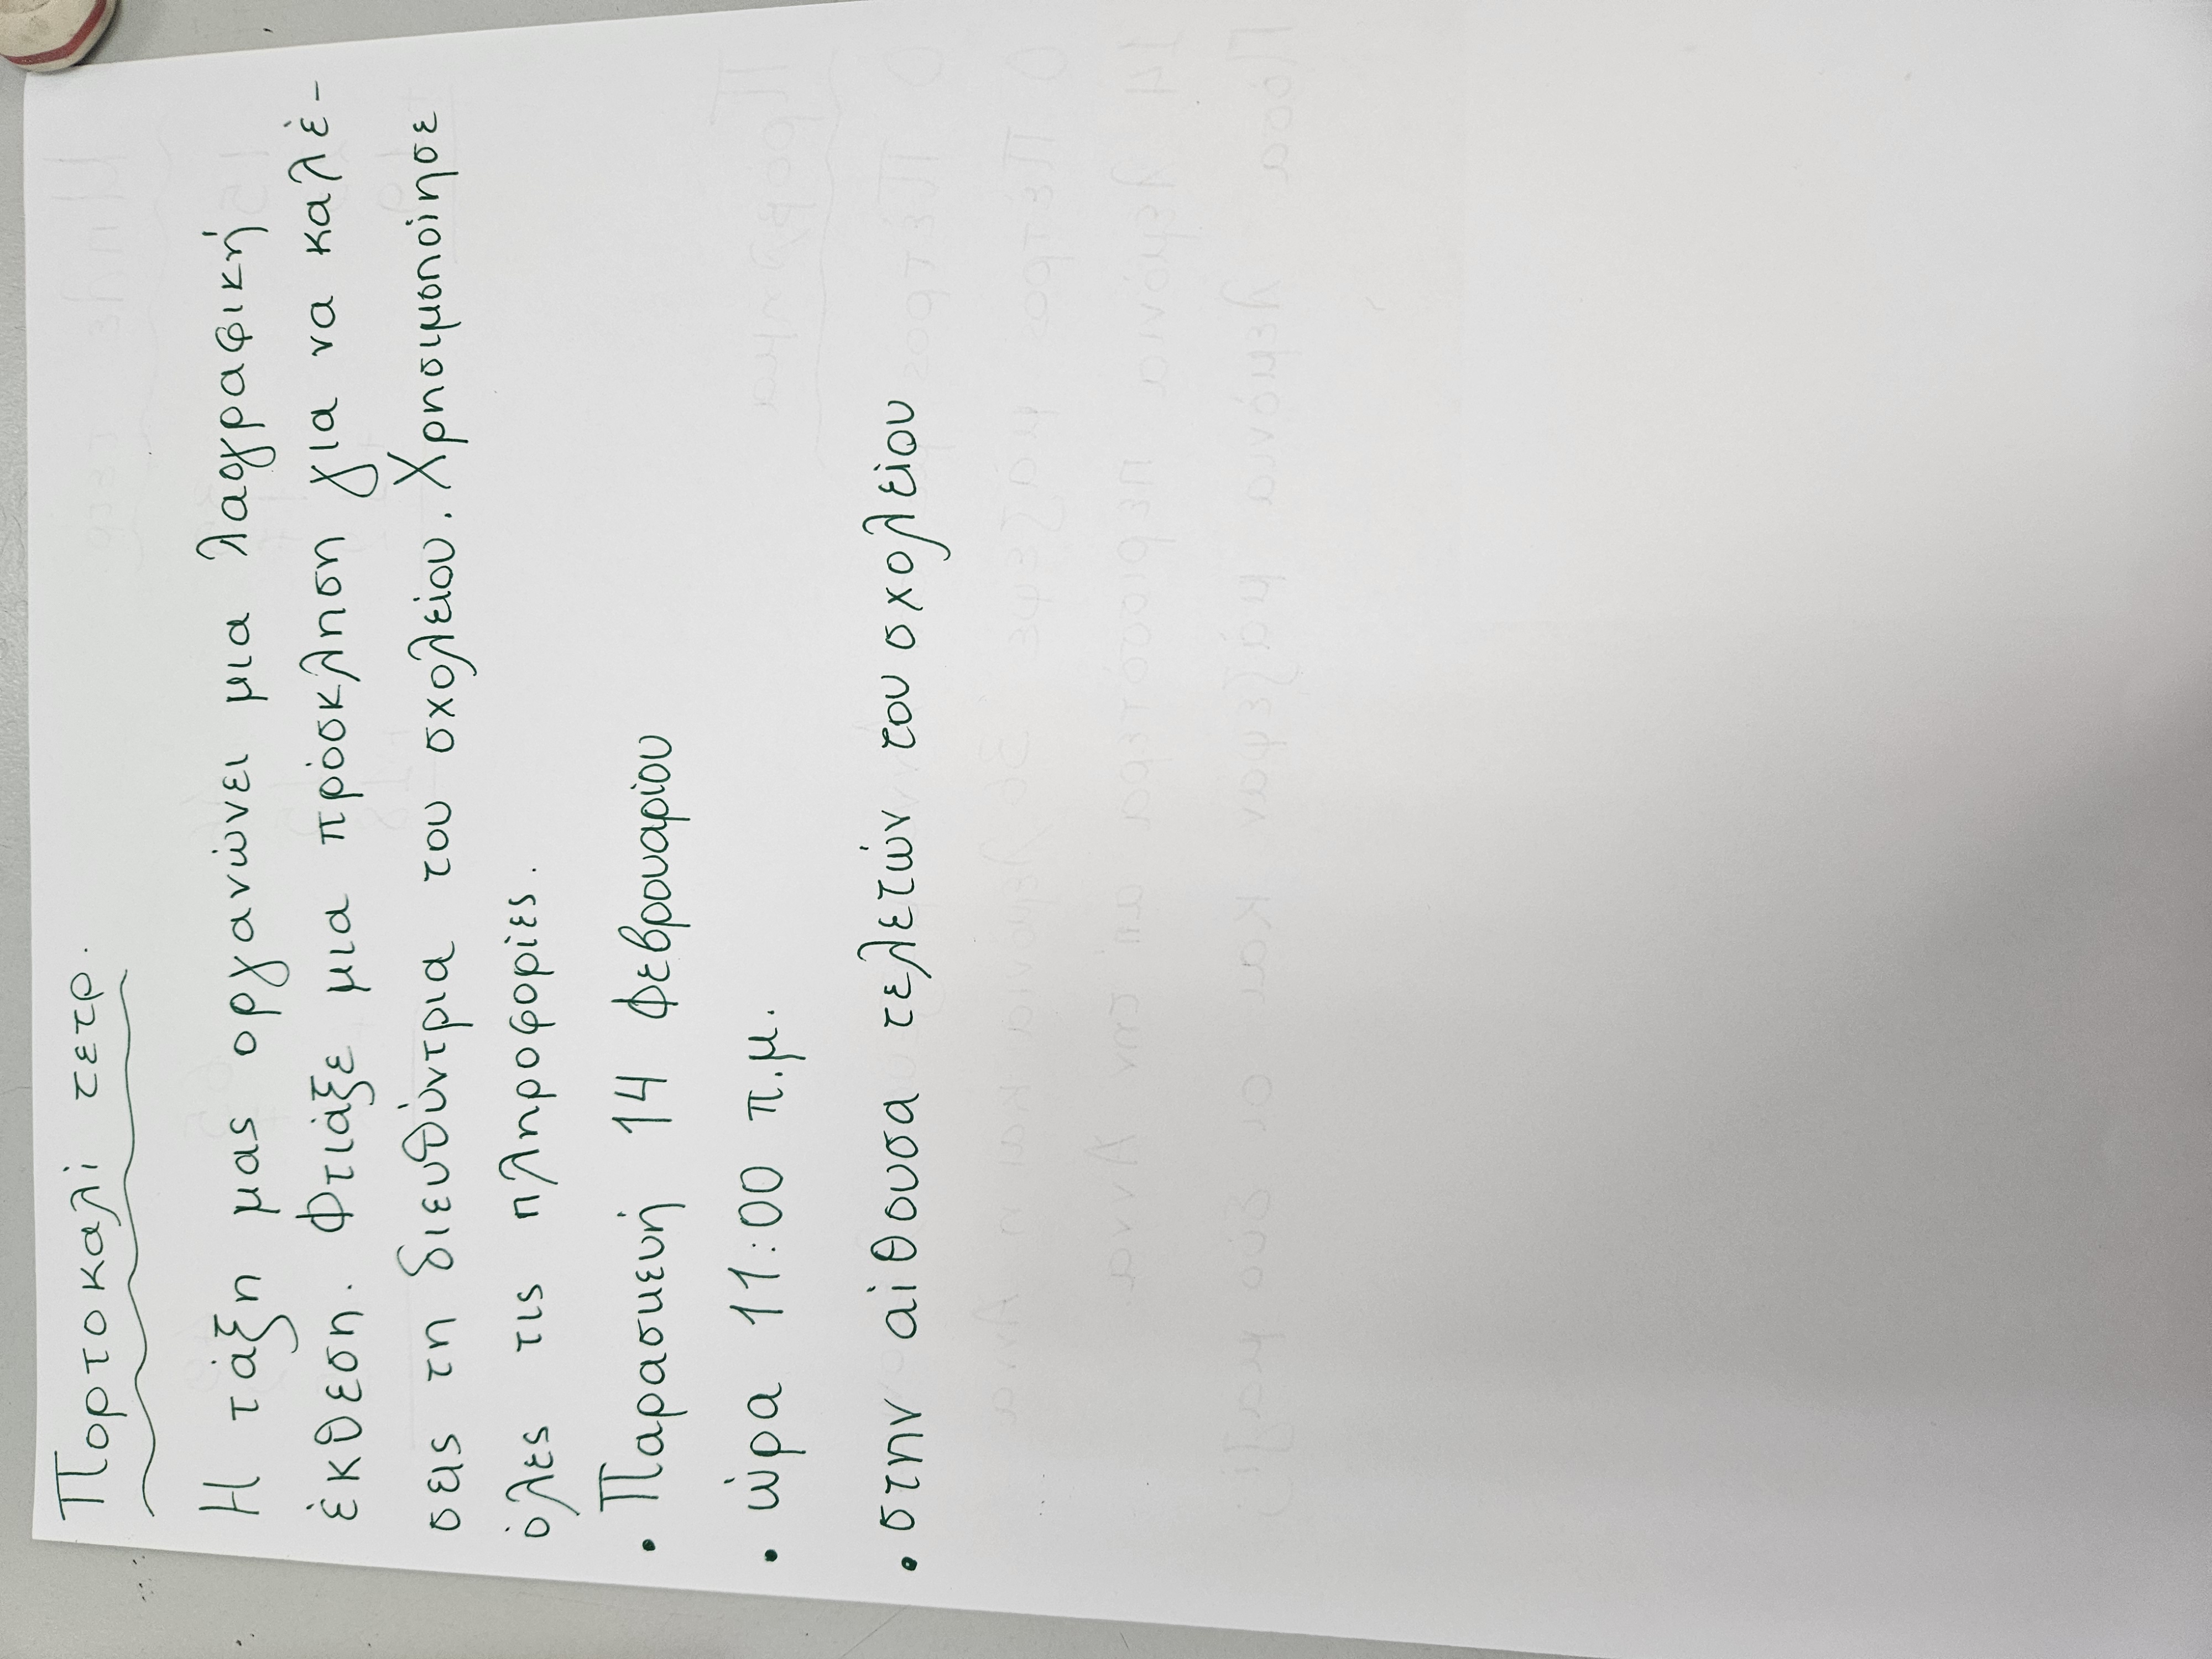 Πορτοκαλί τετρ.
Η τάξη μας οργανώνει μια λαογραφική
έκθεση. Φτιάξε μια πρόσκληση για να καλέ-
σεις τη διευθύντρια του σχολείου. Χρησιμοποίησε
όλες τις πληροφορίες.
• Παρασκευή 14 Φεβρουαρίου
• ώρα 11:00 π.μ.
• στην αίθουσα τελετών του σχολείου